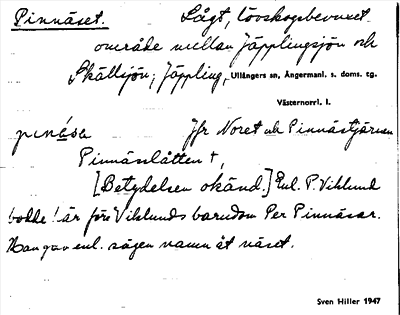 Pinnäset. Lågt, lövskogsbevuxet
område mellan Jäpplingsjön och
Skållsjön; Jäppling, Ullångers sn, Ångermanl. s. doms. tg.
Västernorrl. l.
Jfr Noret och Pinnästjärnen
Pinnässlåtten †,
[Betydelsen okänd.] Enl. P. Viklund
bodde här före Viklunds barndom Per Pinnäsar.
Han gav enl. sägen namn åt näset.
Sven Hiller 1947